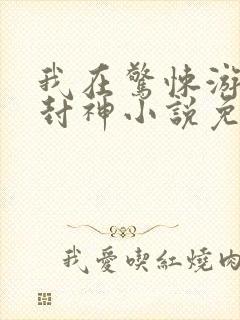 我在驚悚游
封神小説免
我愛喫紅燒肉